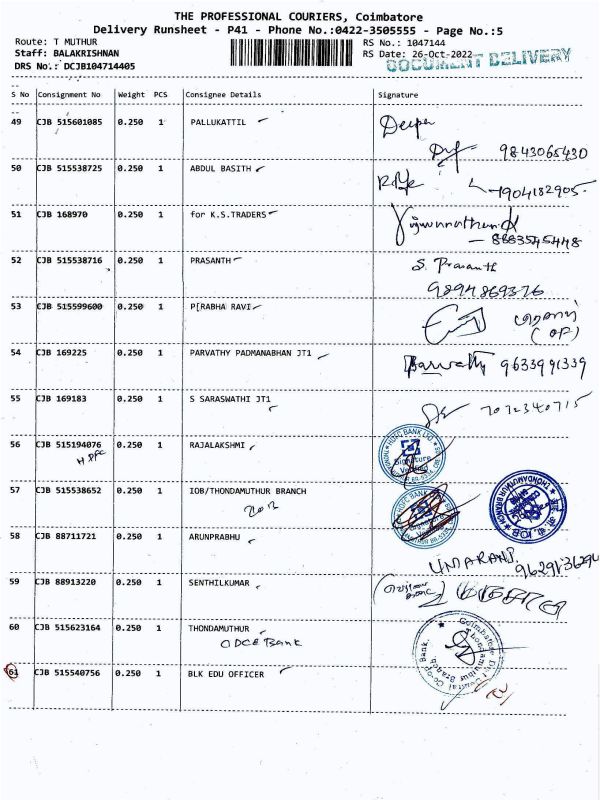 THE PROFESSIONAL COURIERS, Coimbatore
Delivery Runsheet - P41 - Phone No.:0422-3505555 - Page No.:5
Route: T MUTHUR RS No.: 1047144
Staff: BALAKRISHNAN RS Date: 26-Oct-2022
DRS No.: DCJB104714405 DOCUMENT DELIVERY
S No Consignment No Weight PCS Consignee Details Signature
49 CJB 515601085 0.250 1 PALLUKATTIL Deepa
9843065430
50 CJB 515538725 0.250 1 ABDUL BASITH
7904182905
51 CJB 168970 0.250 1 for K.S.TRADERS
8883545448
52 CJB 515538716 0.250 1 PRASANTH S. Prasanth
9894869376
53 CJB 515599600 0.250 1 P[RABHA RAVI
(OP)
54 CJB 169225 0.250 1 PARVATHY PADMANABHAN JT1 Parvathy 9633991339
55 CJB 169183 0.250 1 S SARASWATHI JT1 7072340715
56 CJB 515194076 0.250 1 RAJALAKSHMI HDFC BANK LTD
Signature
Verified
57 CJB 515538652 0.250 1 IOB/THONDAMUTHUR BRANCH
THONDAMUTHUR BRANCH
58 CJB 88711721 0.250 1 ARUNPRABHU UMARANI
59 CJB 88913220 0.250 1 SENTHILKUMAR
60 CJB 515623164 0.250 1 THONDAMUTHUR
Bank
Thondamuthur Branch
61 CJB 515540756 0.250 1 BLK EDU OFFICER